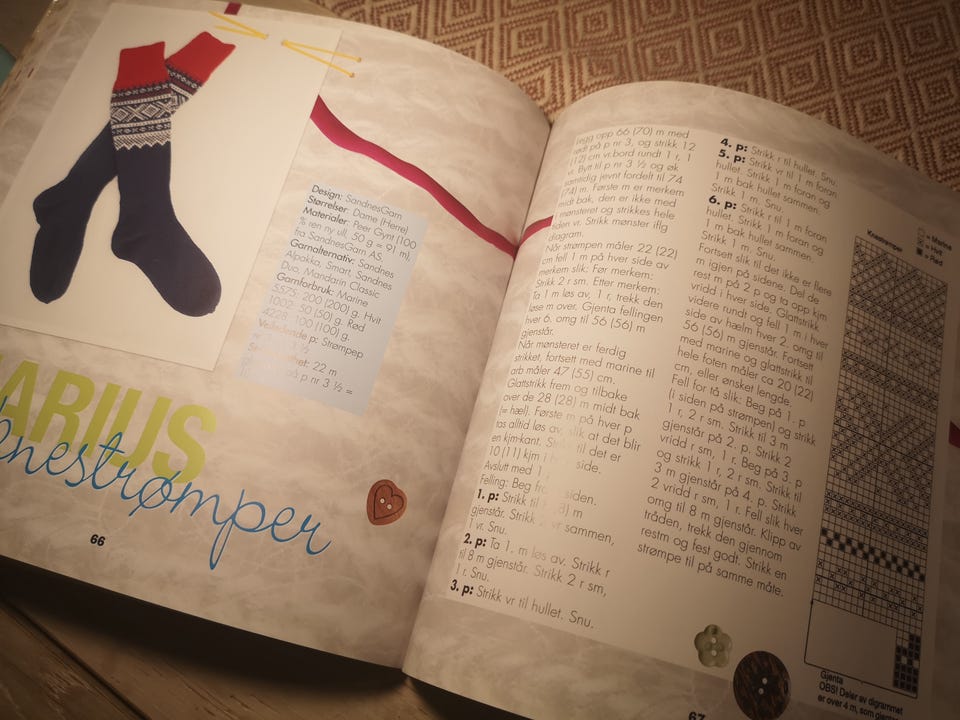 Design: SandnesGarn
Størrelser: Dame (Herre)
Materialer: Peer Gynt (100
% ren ny ull, 50 g = 91 m),
fra SandnesGarn AS.
Garnalternativ: Sandnes
Alpakka, Smart, Sandnes
Duo, Mandarin Classic
Garnforbruk: Marine
5575: 200 (200) g. Hvit
1002: 50 (50) g. Rød
4228: 100 (100) g.
Veiledende p: Strømpep
22 m
på p nr 3 ½ =
ARIUS
nestrømper
66
Legg opp 66 (70) m med
rødt på p nr 3, og strikk 12
(12) cm vr.bord rundt 1 r, 1
vr. Bytt til p nr 3 ½ og øk
samtidig jevnt fordelt til 74
(74) m. Første m er merkem
midt bak, den er ikke med
i mønsteret og strikkes hele
tiden vr. Strikk mønster iflg
diagram.
Når strømpen måler 22 (22)
cm fell 1 m på hver side av
merkem slik: Før merkem:
Strikk 2 r sm. Etter merkem:
Ta 1 m løs av, 1 r, trekk den
løse m over. Gjenta fellingen
hver 6. omg til 56 (56) m
gjenstår.
Når mønsteret er ferdig
strikket, fortsett med marine til
arb måler 47 (55) cm.
Glattstrikk frem og tilbake
over de 28 (28) m midt bak
(= hæl). Første m på hver p
tas alltid løs av, slik at det blir
en kjm-kant. Strikk til det er
10 (11) kjm i hver side.
Avslutt med 1
Felling: Beg fra siden.
1. p: Strikk til m
gjenstår. Strikk vr sammen,
1 vr. Snu.
2. p: Ta 1. m løs av. Strikk r
til 8 m gjenstår. Strikk 2 r sm,
1 r. Snu.
3. p: Strikk vr til hullet. Snu.
4. p: Strikk r til hullet. Snu.
5. p: Strikk vr til 1 m foran
hullet. Strikk 1 m foran og
1 m bak hullet sammen.
Strikk 1 m. Snu.
6. p: Strikk r til 1 m foran
hullet. Strikk 1 m foran og
1 m bak hullet sammen.
Strikk 1 m. Snu.
Fortsett slik til det ikke er flere
m igjen på sidene. Del de
rest m på 2 p og ta opp kjm
vridd i hver side. Glattstrikk
videre rundt og fell 1 m i hver
side av hælm hver 2. omg til
56 (56) m gjenstår. Fortsett
med marine og glattstrikk til
hele foten måler ca 20 (22)
cm, eller ønsket lengde.
Fell for tå slik: Beg på 1. p
(i siden på strømpen) og strikk
1 r, 2 r sm. Strikk til 3 m
gjenstår på 2. p. Strikk 2
vridd r sm, 1 r. Beg på 3. p
og strikk 1 r, 2 r sm. Strikk til
3 m gjenstår på 4. p. Strikk
2 vridd r sm, 1 r. Fell slik hver
omg til 8 m gjenstår. Klipp av
tråden, trekk den gjennom
restm og fest godt. Strikk en
strømpe til på samme måte.
Knestrømper
= Marine
= Hvit
= Rød
Gjenta
OBS! Deler av digrammet
er over 4 m, som
67